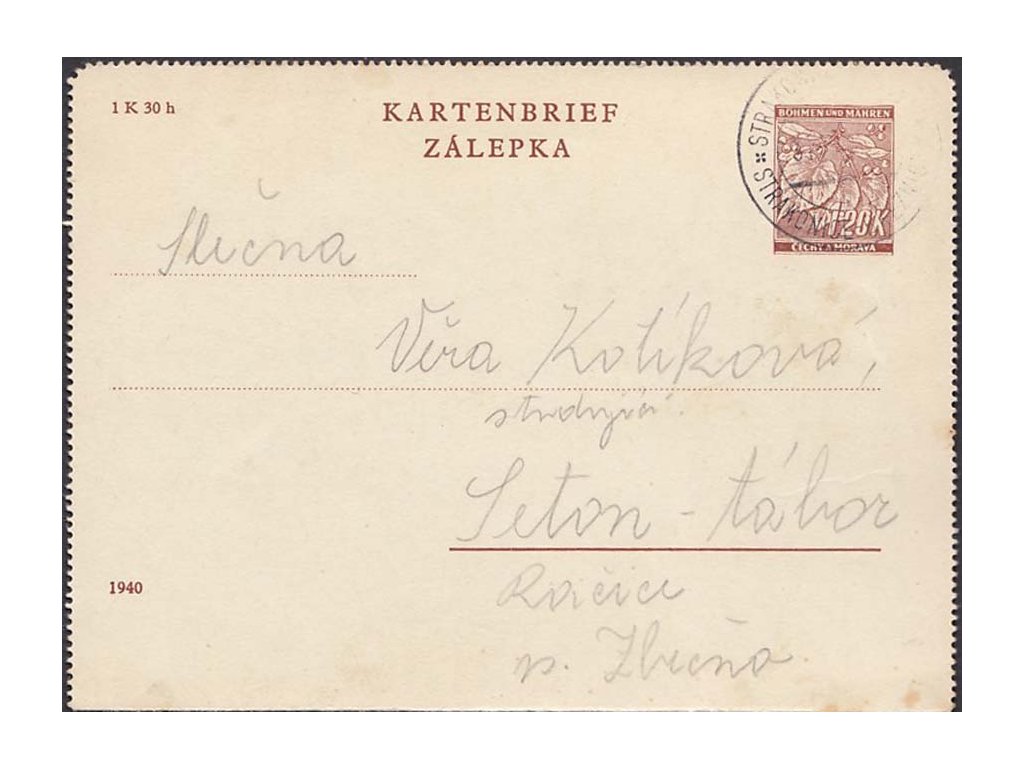 1 K 30 h
KARTENBRIEF
ZÁLEPKA
BÖHMEN UND MÄHREN
1.20K
ČECHY A MORAVA
STRAKONICE
Slečna
Věra Kolíková,
studující
Seton - tábor
Račice
p. Zbečno
1940